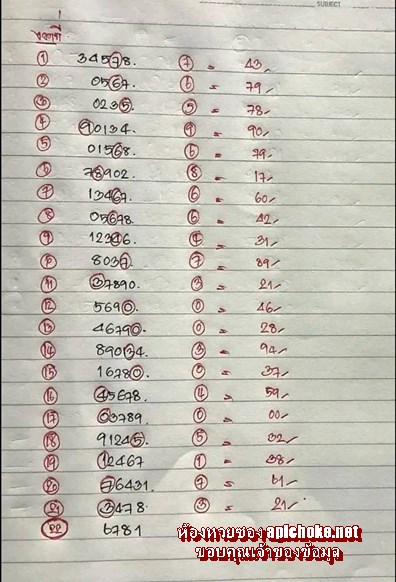 SUBJECT
งวดที่
① 34578. ⑦ = 43
② 0567. ⑥ = 79
③ 0235 ⑤ = 78
④ 90134. ⑨ = 90
⑤ 01568. ⑥ = 79
⑥ 78902 ⑧ = 17
⑦ 13467. ⑥ = 60
⑧ 05678 ⑥ = 42
⑨ 12346 ④ = 31
⑩ 8037 ⑦ = 89
⑪ 37890. ③ = 21
⑫ 5690. ⓪ = 46
⑬ 46790. ⓪ = 28
⑭ 890134. ③ = 94
⑮ 16780. ⓪ = 37
⑯ 45678. ④ = 59
⑰ 03789. ⓪ = 00
⑱ 91245. ⑤ = 32
⑲ 12467 ① = 38
⑳ 76431. ⑦ = 61
㉑ 3478 ③ = 21
㉒ 6781
ห้องหวยซอง apichoke.net
ขอบคุณเจ้าของข้อมูล